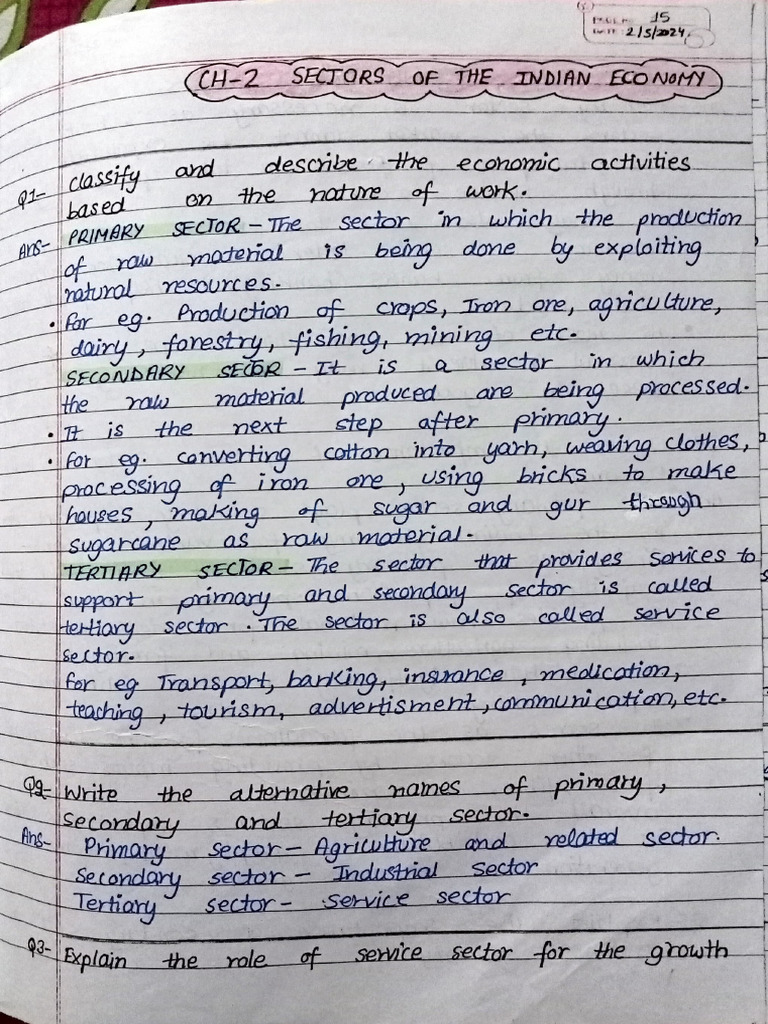 PAGE No. 15
DATE: 2/5/2024
CH-2 SECTORS OF THE INDIAN ECONOMY
Q1- Classify and describe the economic activities
based on the nature of work.
Ans- PRIMARY SECTOR - The sector in which the production
of raw material is being done by exploiting
natural resources.
• for eg. Production of crops, Iron ore, agriculture,
dairy, forestry, fishing, mining etc.
SECONDARY SECOR - It is a sector in which
the raw material produced are being processed.
• It is the next step after primary.
• for eg. converting cotton into yarn, weaving clothes,
processing of iron ore, using bricks to make
houses, making of sugar and gur through
sugarcane as raw material.
TERTIARY SECTOR - The sector that provides services to
support primary and secondary sector is called
tertiary sector. The sector is also called service
sector.
for eg Transport, banking, insurance, medication,
teaching, tourism, advertisment, communication, etc.
Q2- Write the alternative names of primary,
secondary and tertiary sector.
Ans- Primary sector - Agriculture and related sector.
Secondary sector - Industrial sector
Tertiary sector - service sector
Q3- Explain the role of service sector for the growth